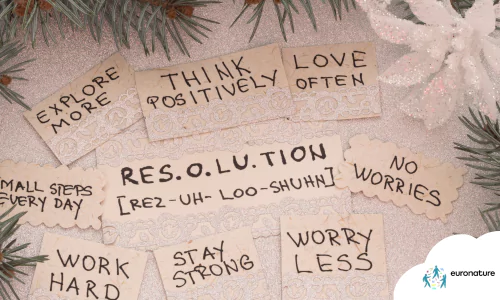 EXPLORE
MORE
THINK
POSITIVELY
LOVE
OFTEN
RES.O.LU.TION
[REZ-UH- LOO-SHUHN]
NO
WORRIES
SMALL STEPS
EVERY DAY
WORK
HARD
STAY
STRONG
WORRY
LESS
euronature